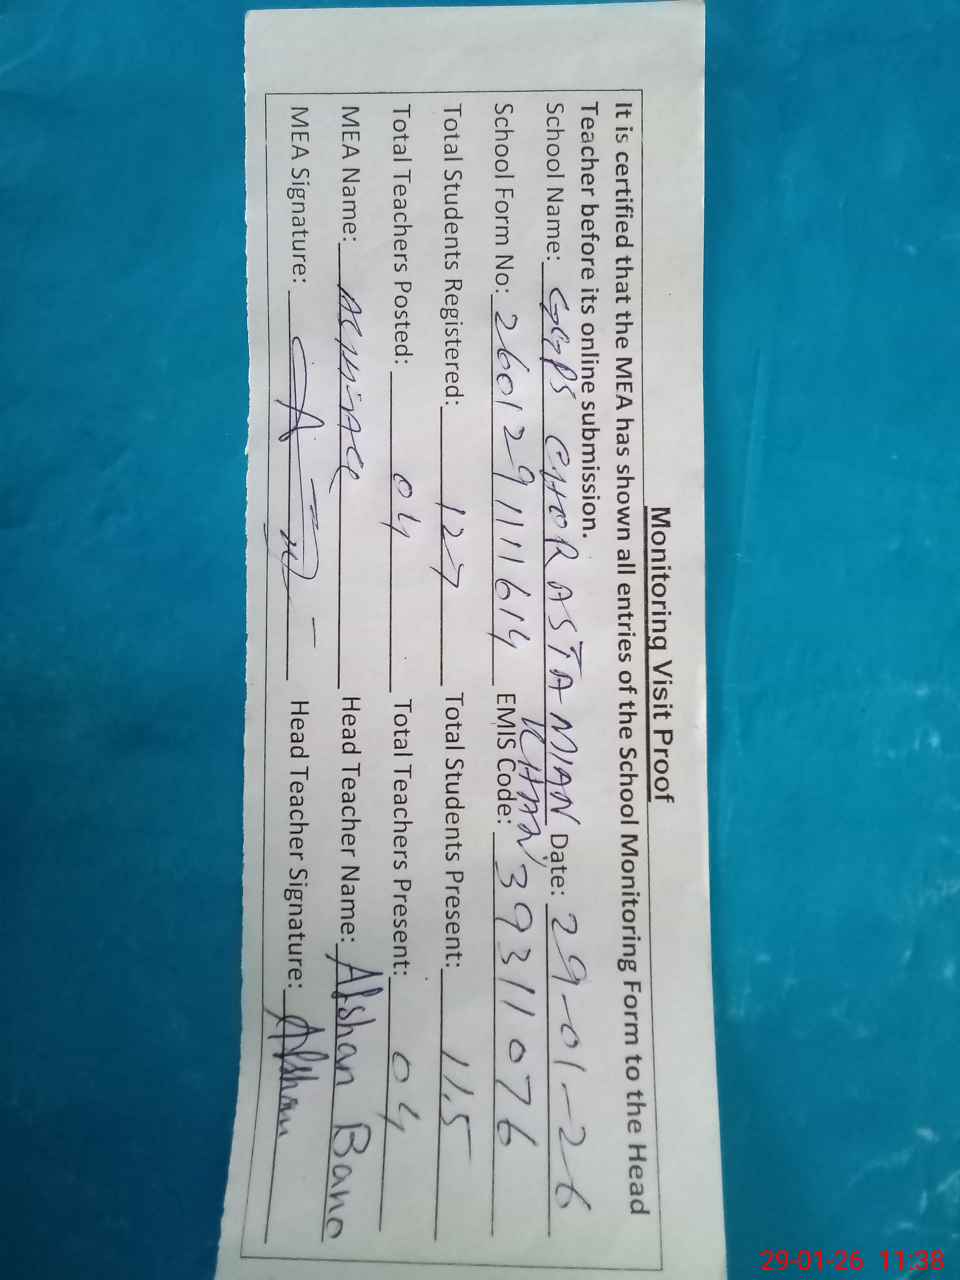 Monitoring Visit Proof
It is certified that the MEA has shown all entries of the School Monitoring Form to the Head
Teacher before its online submission.
School Name: GGPS CHORASTA MIAN KHAN Date: 29-01-26
School Form No: 2601291111614 EMIS Code: 39311076
Total Students Registered: 127 Total Students Present: 115
Total Teachers Posted: 04 Total Teachers Present: 04
MEA Name: Head Teacher Name: Afshan Bano
MEA Signature: Head Teacher Signature: Afshan
29-01-26 11:38